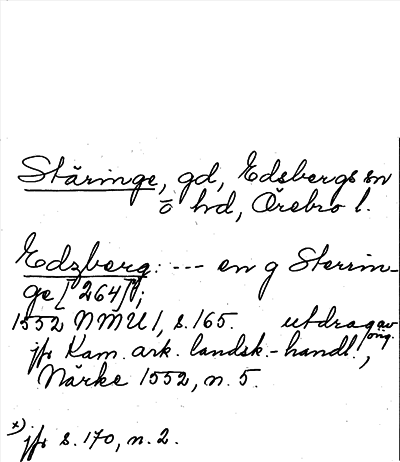 Stäringe, gd, Edsbergs sn
o hd, Örebro l.
Edzberg: --- en g Sterrin-
ge [264]x);
1552 NMU 1, s. 165. utdrag av
jfr Kam. ark. landsk.-handl., orig.
Närke 1552, n. 5.
x) jfr s. 170, n. 2.